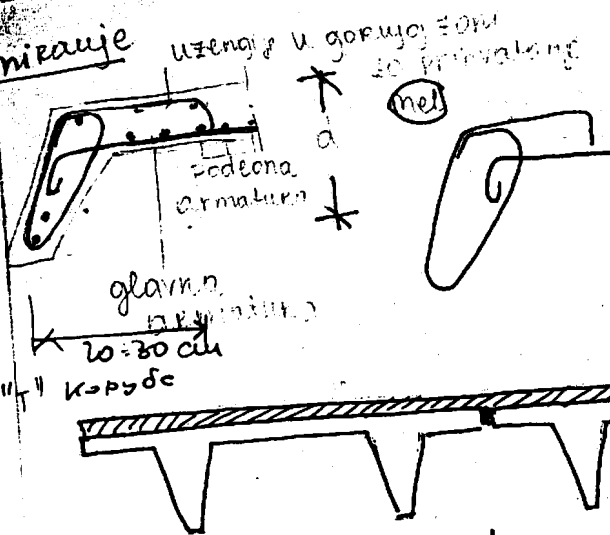 uzengije u gornjoj zoni
a
podeona
armatura
glavna
armatura
20÷30 cm
"T" корубе